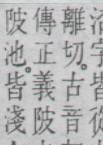 字皆彼
離切。古音
傳正義陂
陂池。皆淺